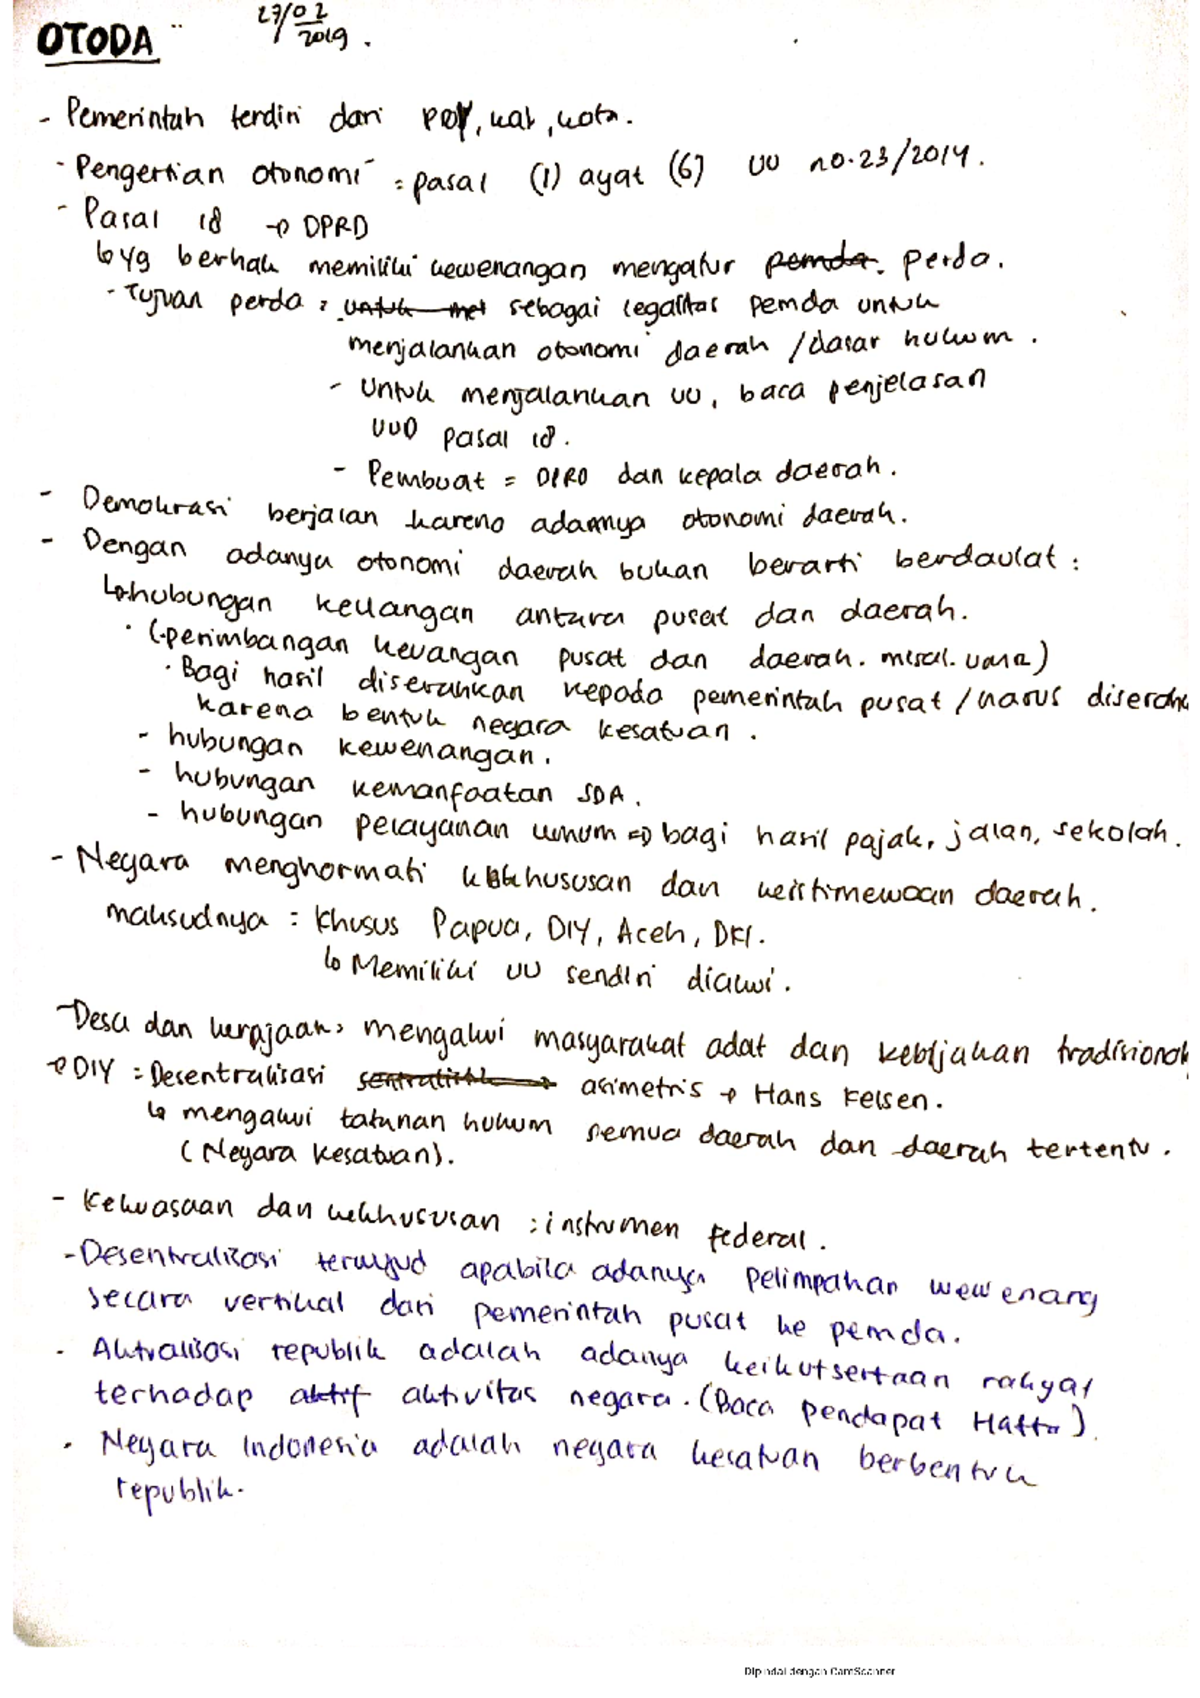 OTODA 27/02/2019.
- Pemerintah terdiri dari prov, kab, kota.
- Pengertian otonomi = pasal (1) ayat (6) UU no.23/2014.
- Pasal 18 → DPRD
↳ yg berhak memiliki kewenangan mengatur pemda. perda.
- Tujuan perda : untuk met sebagai legalitas pemda untuk
menjalankan otonomi daerah / dasar hukum.
- Untuk menjalankan UU, baca penjelasan
UUD pasal 18.
- Pembuat = DPRD dan kepala daerah.
- Demokrasi berjalan karena adannya otonomi daerah.
- Dengan adanya otonomi daerah bukan berarti berdaulat :
↳ hubungan keuangan antara pusat dan daerah.
· (perimbangan keuangan pusat dan daerah. misal.
· Bagi hasil diserahkan kepada pemerintah pusat / harus diserahk
karena bentuk negara kesatuan.
- hubungan kewenangan.
- hubungan kemanfaatan SDA.
- hubungan pelayanan umum => bagi hasil pajak, jalan, sekolah.
- Negara menghormati kekhususan dan keistimewaan daerah.
maksudnya : Khusus Papua, DIY, Aceh, DKI.
↳ Memiliki UU sendiri diakui.
- Desa dan kerajaan, mengakui masyarakat adat dan kebijakan tradisional
→ DIY : Desentralisasi → asimetris → Hans Kelsen.
↳ mengakui tatanan hukum semua daerah dan daerah tertentu.
(Negara Kesatuan).
- Kekuasaan dan kekhususan : instrumen federal.
- Desentralisasi terwujud apabila adanya pelimpahan wewenang
secara vertikal dari pemerintah pusat ke pemda.
- Aktualisasi republik adalah adanya keikutsertaan rakyat
terhadap aktif aktivitas negara. (Baca pendapat Hatta).
· Negara Indonesia adalah negara kesatuan berbentuk
republik.
Dipindai dengan CamScanner